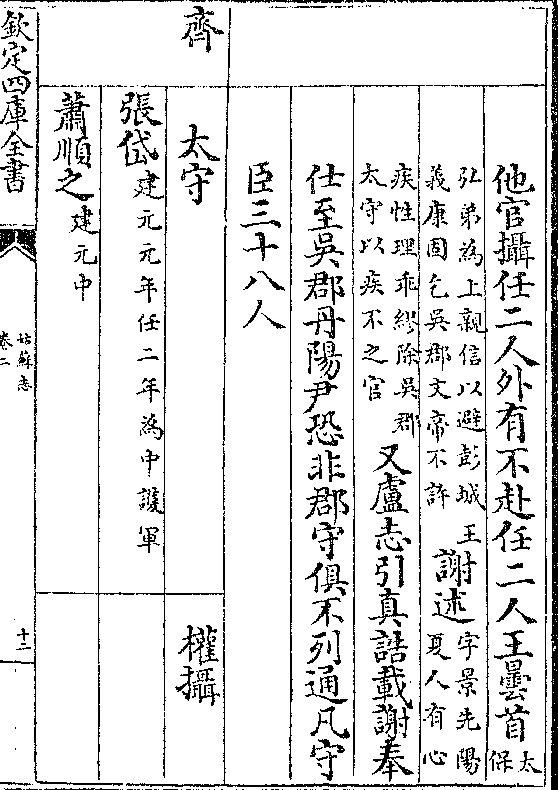 他官攝任二人外有不赴任二人王曇首太保
弘弟為上親信以避彭城王義康固乞吳郡文帝不許謝述字景先陽夏人有心
疾性理乖繆除吳郡太守以疾不之官又盧志引真誥載謝奉
仕至吳郡丹陽尹恐非郡守俱不列通凡守
臣三十八人
齊
太守 權攝
張岱建元元年任二年為中護軍
蕭順之建元中
欽定四庫全書
姑蘇志
卷二
十二